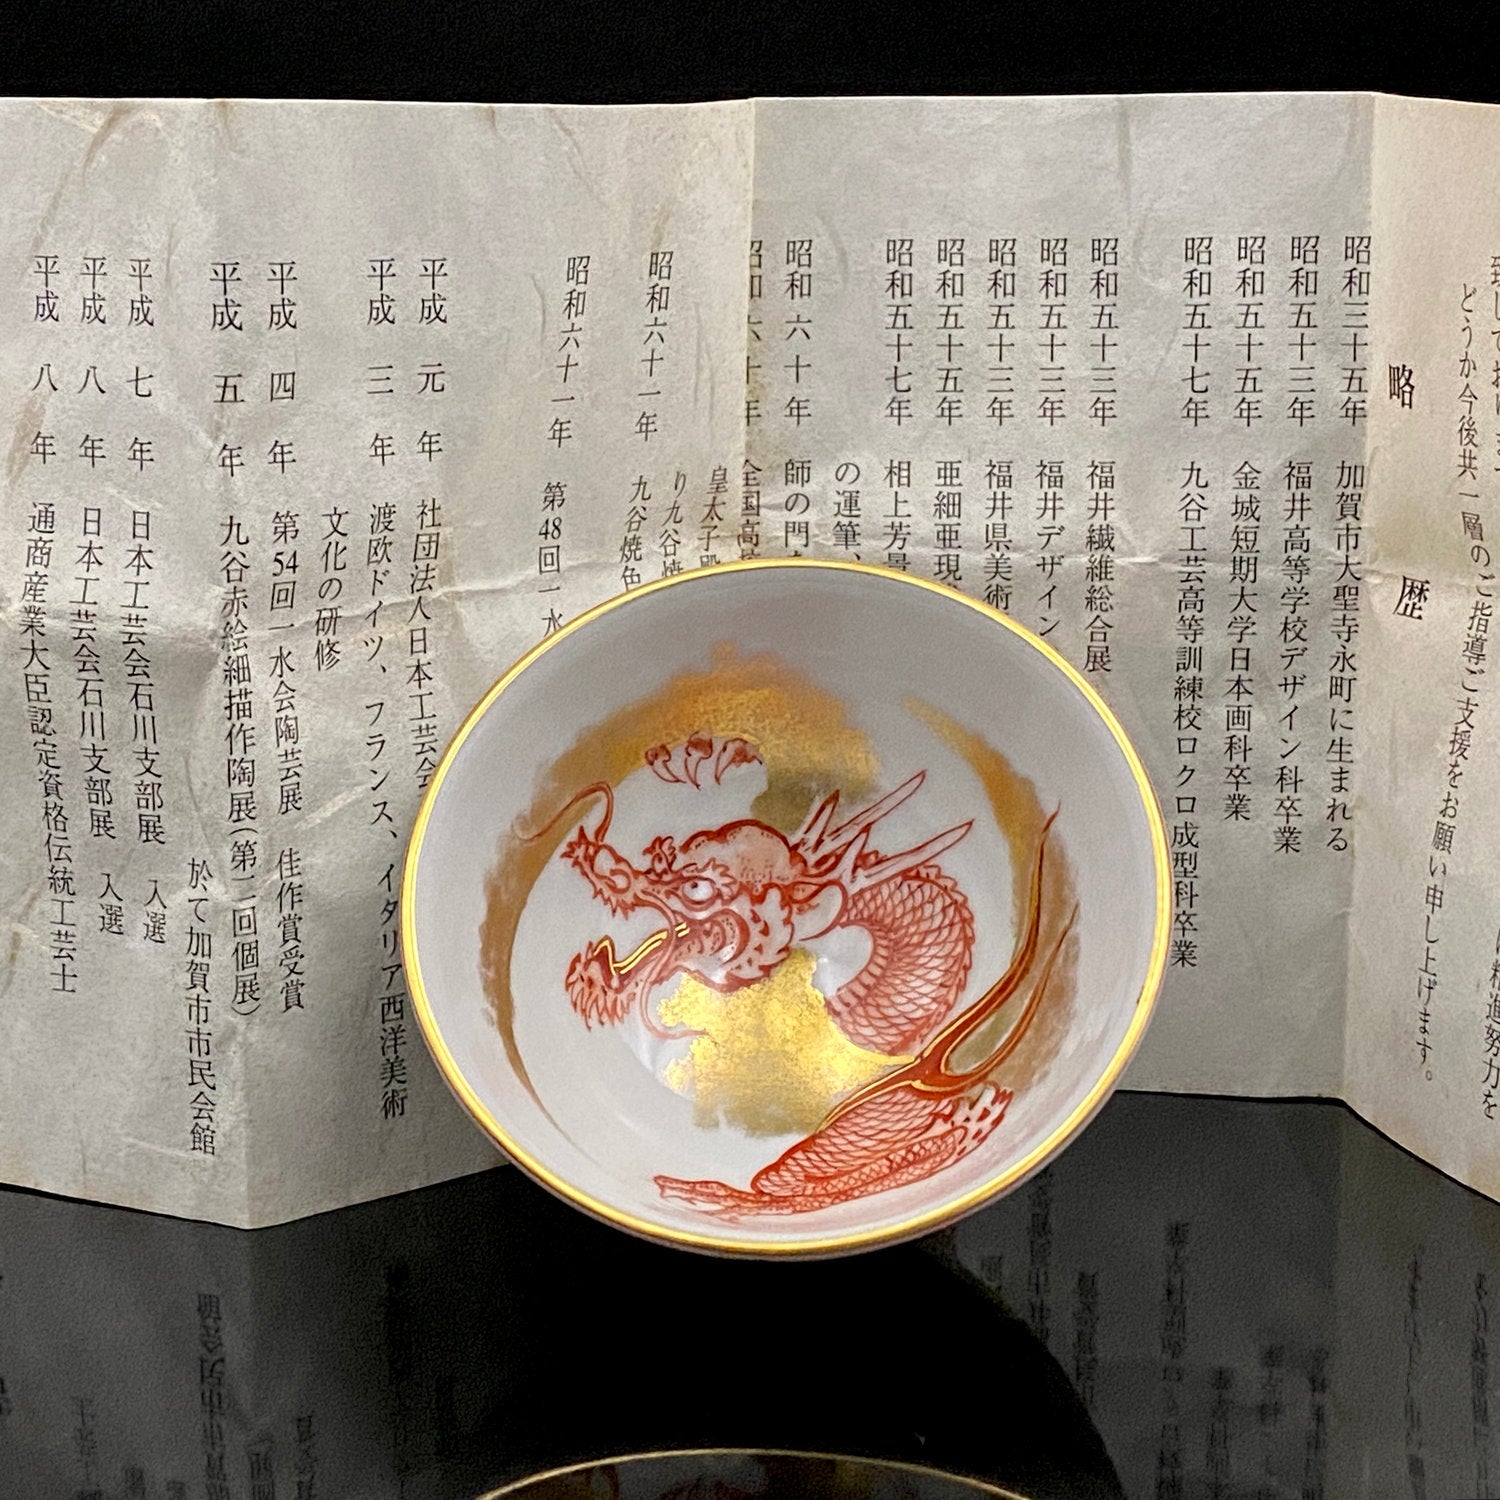 どうか今後共一層のご指導ご支援をお願い申し上げます。
略歴
昭和三十五年 加賀市大聖寺永町に生まれる
昭和五十三年 福井高等学校デザイン科卒業
昭和五十五年 金城短期大学日本画科卒業
昭和五十七年 九谷工芸高等訓練校ロクロ成型科卒業
昭和五十三年 福井繊維総合展
昭和五十三年 福井デザイン
昭和五十五年 福井県美術
昭和五十五年 亜細亜現
昭和五十七年 相上芳景
の運筆、
昭和六十年 師の門
昭和六十年 全国高
皇太子殿
り九谷焼
昭和六十一年 九谷焼色
昭和六十一年 第48回一水
平成元年 社団法人日本工芸会
平成三年 渡欧ドイツ、フランス、イタリア西洋美術
文化の研修
平成四年 第54回一水会陶芸展 佳作賞受賞
平成五年 九谷赤絵細描作陶展(第二回個展)
於て加賀市市民会館
平成七年 日本工芸会石川支部展 入選
平成八年 日本工芸会石川支部展 入選
平成八年 通商産業大臣認定資格伝統工芸士